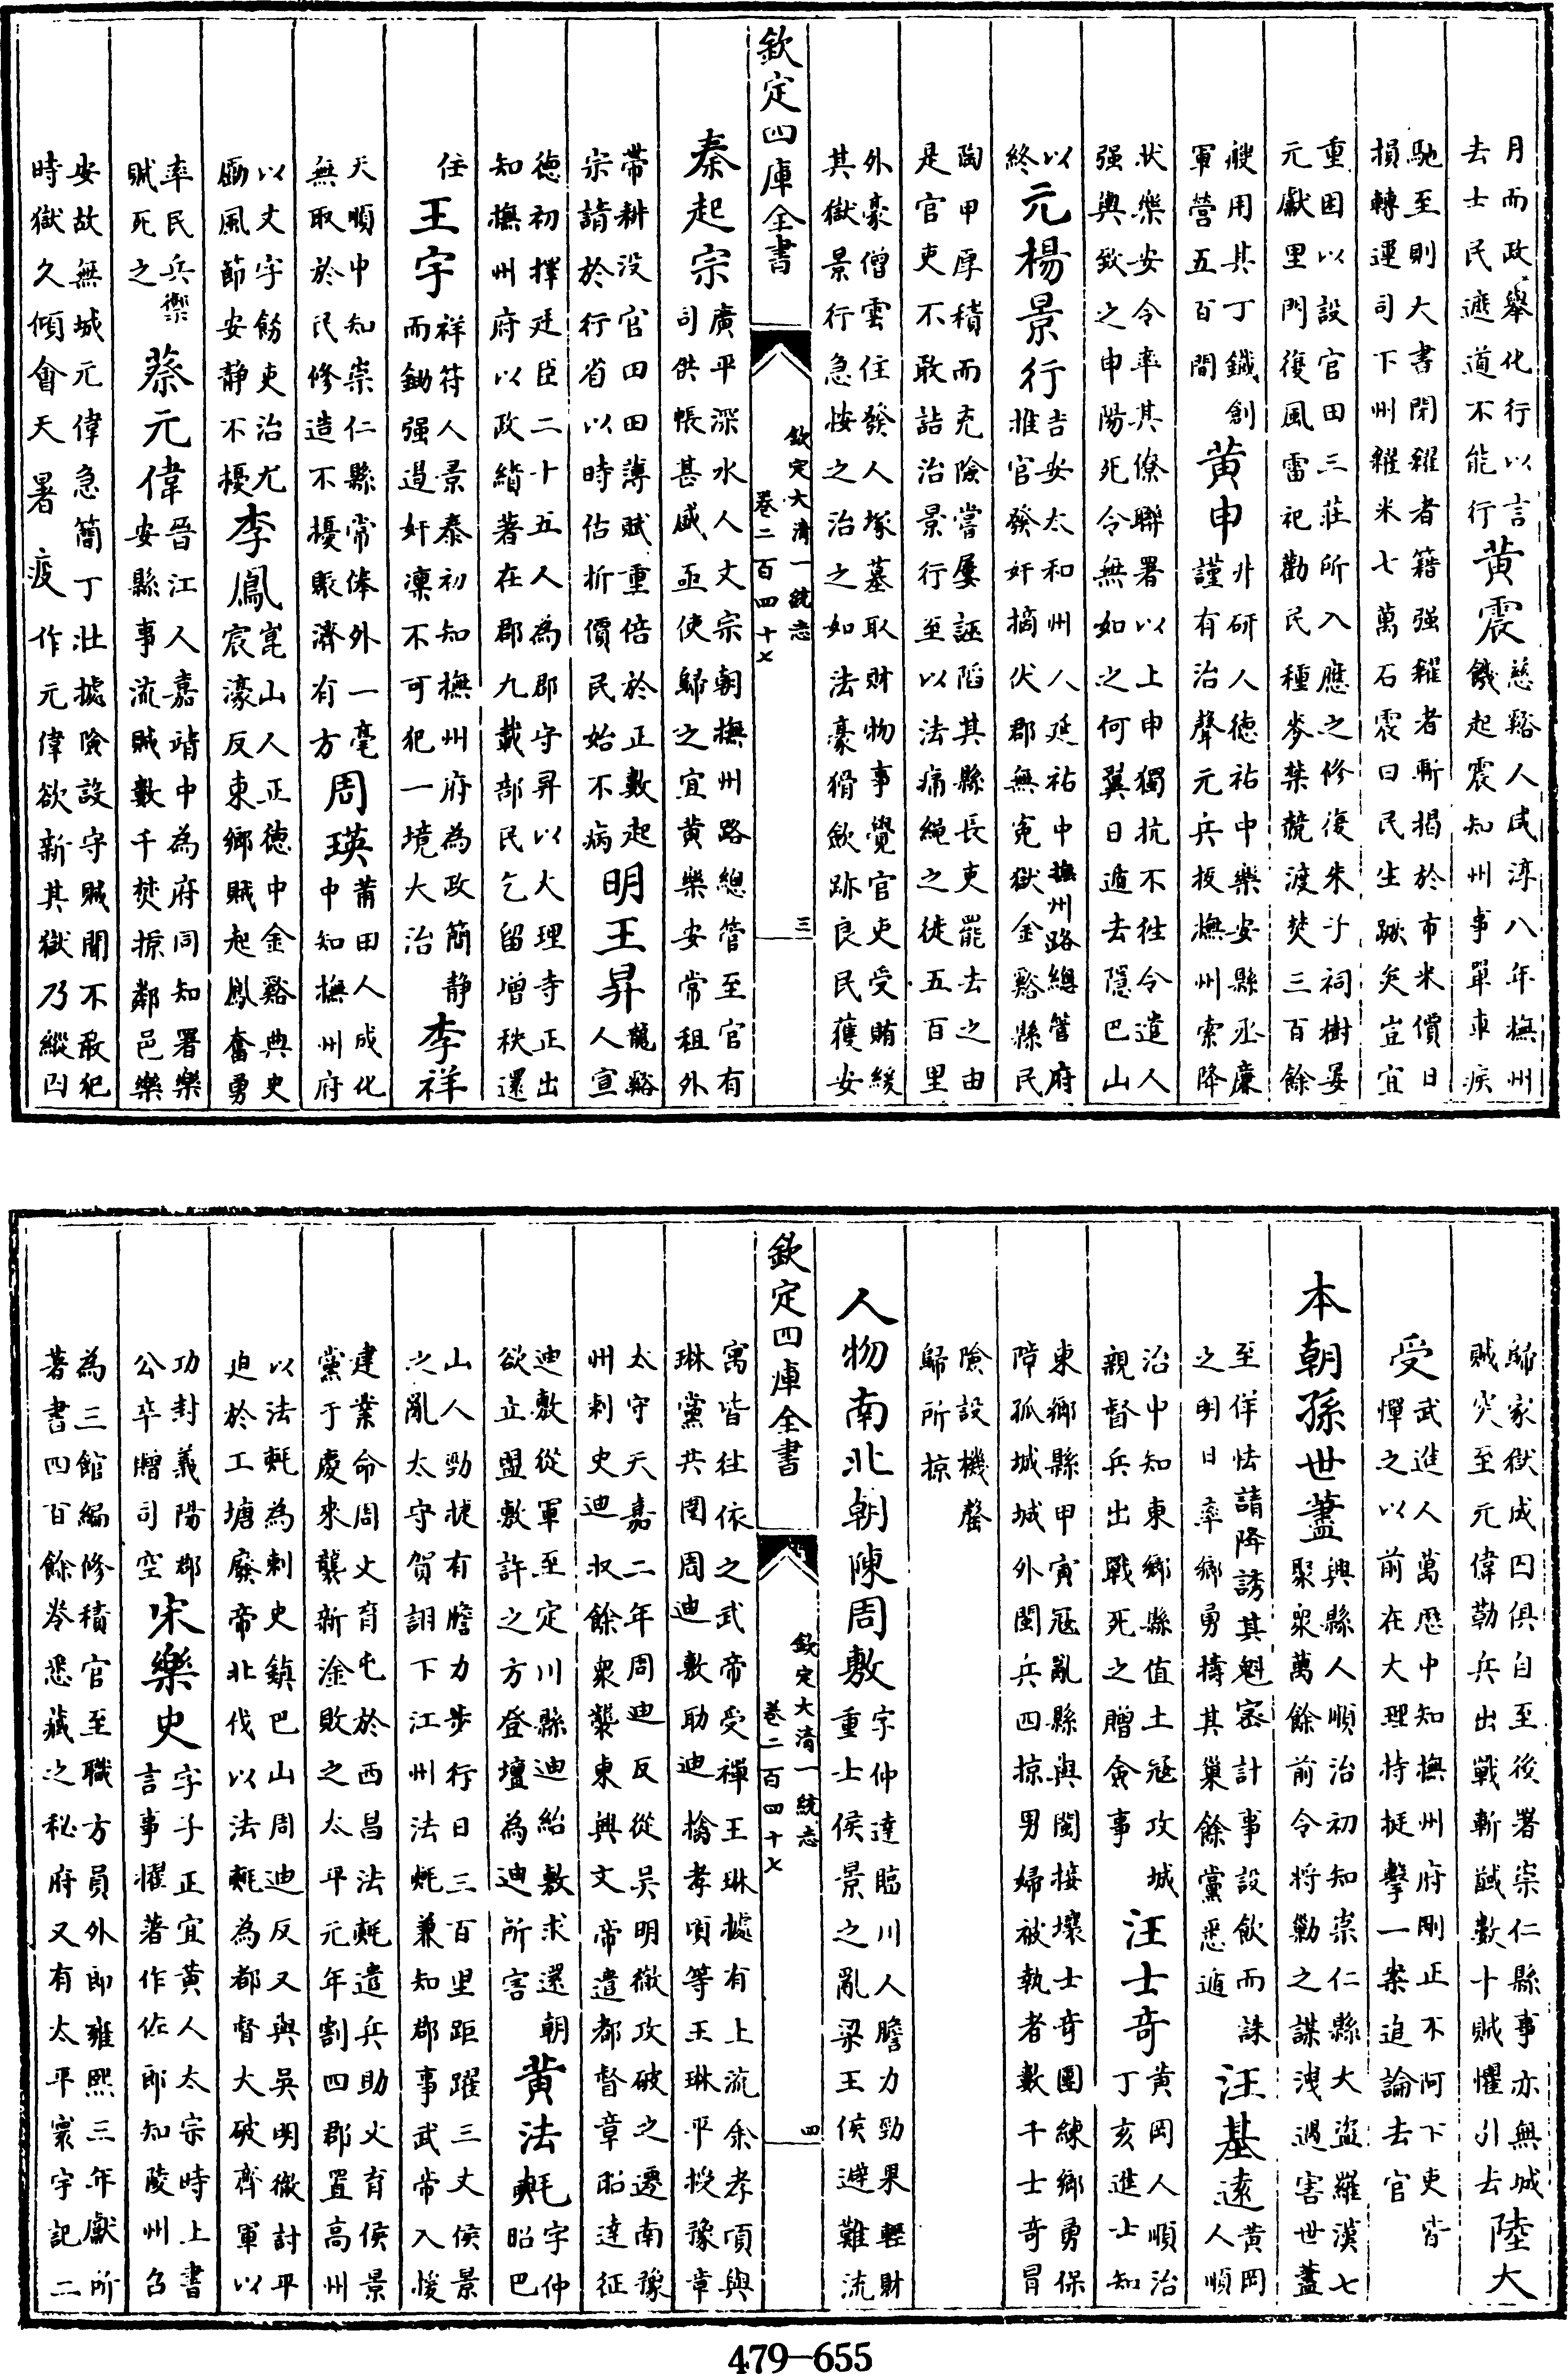 月而政舉化行以言
去士民遮道不能行
黃震
慈谿人咸淳八年撫州
饑起震知州事單車疾
馳至則大書閉糴者籍强糴者斬揭於市米價日
損轉運司下州糴米七萬石震曰民生蹶矣豈宜
重困以設官田三莊所入應之修復朱子祠樹晏
元獻里門復風雷祀勸民種麥禁競渡焚三百餘
艘用其丁鐵創
軍營五百間
黃申
井研人德祐中樂安縣丞廉
謹有治聲元兵扳撫州索降
狀樂安令率其僚聯署以上申獨抗不往令遣人
强輿致之申陽死令無如之何翼日遁去隱巴山
以
終
元楊景行
吉安太和州人延祐中撫州路總管府
推官發奸摘伏郡無寃獄金谿縣民
陶甲厚積而充險嘗屢誣陷其縣長吏罷去之由
是官吏不敢詰治景行至以法痛繩之徒五百里
外豪僧雲住發人塚墓取財物事覺官吏受賄緩
其獄景行急按之治之如法豪猾歛跡良民獲安
欽定四庫全書
欽定大清一統志
卷二百四十七
三
秦起宗
廣平深水人文宗朝撫州路總管至官有
司供帳甚盛亟使歸之宜黃樂安常租外
帶耕没官田田薄賦重倍於正數起
宗請於行省以時估折價民始不病
明王昇
龍谿
人宣
德初擇廷臣二十五人為郡守昇以大理寺正出
知撫州府以政績著在郡九載部民乞留增秩還
任
王宇
祥符人景泰初知撫州府為政簡靜
而鋤强遏奸凜不可犯一境大治
李祥
天順中知崇仁縣常俸外一毫
無取於民修造不擾賑濟有方
周瑛
莆田人成化
中知撫州府
以文字飭吏治尤
勵風節安静不擾
李鳳
崑山人正德中金谿典史
宸濠反東鄉賊起鳳奮勇
率民兵禦
賊死之
蔡元偉
晉江人嘉靖中為府同知署樂
安縣事流賊數千焚掠鄰邑樂
安故無城元偉急簡丁壯據險設守賊聞不敢犯
時獄久傾會天暑疫作元偉欲新其獄乃縱囚
歸家獄成囚俱自至後署崇仁縣事亦無城
賊突至元偉勒兵出戰斬馘數十賊懼引去
陸大
受
武進人萬歷中知撫州府剛正不阿下吏皆
憚之以前在大理持挺擊一案迫論去官
本朝孫世藎
興縣人順治初知崇仁縣大盜羅漢七
聚衆萬餘前令將勦之謀洩遇害世藎
至佯怯請降誘其魁密計事設飲而誅
之明日率鄉勇擣其巢餘黨悉遁
汪基遠
黃岡
人順
治中知東鄉縣值土冦攻城
親督兵出戰死之贈僉事
汪士奇
黃岡人順治
丁亥進士知
東鄉縣甲寅冦亂縣與閩接壤士奇團練鄉勇保
障孤城城外閩兵四掠男婦被執者數千士奇冒
險設機罄
歸所掠
人物南北朝陳周敷
字仲達臨川人膽力勁果輕財
重士侯景之亂梁王侯避難流
欽定四庫全書
欽定大清一統志
卷二百四十七
四
寓皆往依之武帝受禪王琳據有上流余孝頃與
琳黨共圍周迪敷助迪擒孝頃等王琳平授豫章
太守天嘉二年周迪反從吳明徹攻破之遷南豫
州刺史迪收餘衆襲東興文帝遣都督章昭達征
迪敷從軍至定川縣迪紿敷求還朝
欲立盟敷許之方登壇為迪所害
黃法𣰰
字仲
昭巴
山人勁捷有膽力步行日三百里距躍三丈侯景
之亂太守賀詡下江州法𣰰兼知郡事武帝入援
建業命周文育屯於西昌法𣰰遣兵助文育侯景
黨于慶來襲新淦敗之太平元年割四郡置高州
以法𣰰為刺史鎮巴山周迪反又與吳明徹討平
迫於工塘廢帝北伐以法𣰰為都督大破齊軍以
功封義陽郡
公卒贈司空
宋樂史
字子正宜黃人太宗時上書
言事擢著作佐郎知陵州召
為三館編修積官至職方員外郎雍熙三年獻所
著書四百餘卷悉藏之秘府又有太平寰宇記二
479—655